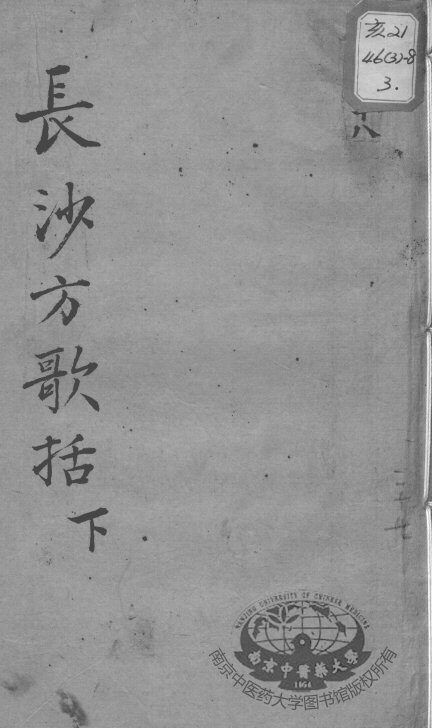 長沙方歌括下
亥21
46(3)-8
3.
八
三十七
NANJING UNIVERSITY OF CHINESE MEDICINE
南京中醫藥大學
1954
南京中医药大学图书馆版权所有